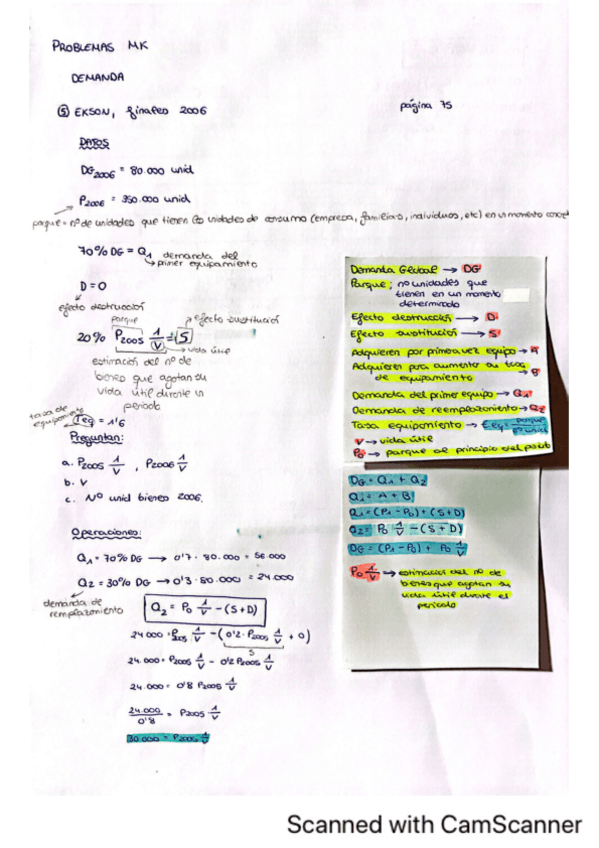 PROBLEMAS MK
DEMANDA
⑤ EKSON, finales 2006
página 75
DATOS
DG2006 = 80.000 unid
P2006 = 350.000 unid
parque = nº de unidades que tienen las unidades de consumo (empresa, familias, individuos, etc) en un momento
70% DG = Q1 demanda del
primer equipamiento
D = 0
efecto destrucción
parque
efecto sustitución
20% P2005 1/V = S
vida útil
estimación del nº de
bienes que agotan su
vida útil durante un
periodo
tasa de
equipamiento
Teq = 1'6
Preguntan:
a. P2005 1/V , P2006 1/V
b. V
c. Nº unid bienes 2006.
Operaciones:
Q1 = 70% DG → 0'7 · 80.000 = 56.000
Q2 = 30% DG → 0'3 · 80.000 = 24.000
demanda de
remplazamiento
Q2 = P0 1/V - (S+D)
24.000 = P2005 1/V - (0'2 · P2005 1/V + 0)
S
24.000 = P2005 1/V - 0'2 P2005 1/V
24.000 = 0'8 P2005 1/V
24.000/0'8 = P2005 1/V
30.000 = P2005 1/V
Demanda Global → DG
Parque; no unidades que
tienen en un momento
determinado
Efecto destrucción → D
Efecto sustitución → S
Adquieren por primera vez equipo → A
Adquieren para aumentar su tasa
de equipamiento → B
Demanda del primer equipo → Q1
Demanda de reemplazamiento → Q2
Tasa equipamiento →
V → vida útil
P0 → parque al principio del
DG = Q1 + Q2
Q1 = A + B
Q1 = (P1 - P0) + (S + D)
Q2 = P0 1/V - (S + D)
DG = (P1 - P0) + P0 1/V
P0 1/V → estimación del nº de
bienes que agotan su
vida útil durante el
periodo
Scanned with CamScanner